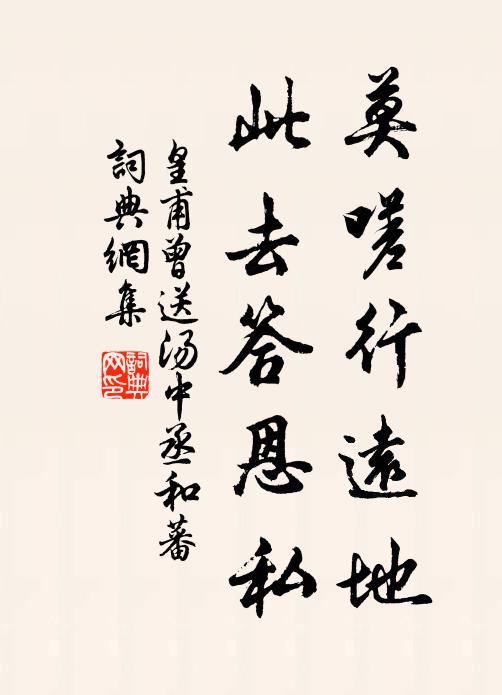 莫嗟行遠地
此去答恩私
皇甫曾送汤中丞和蕃
詞典網集
詞典
网印